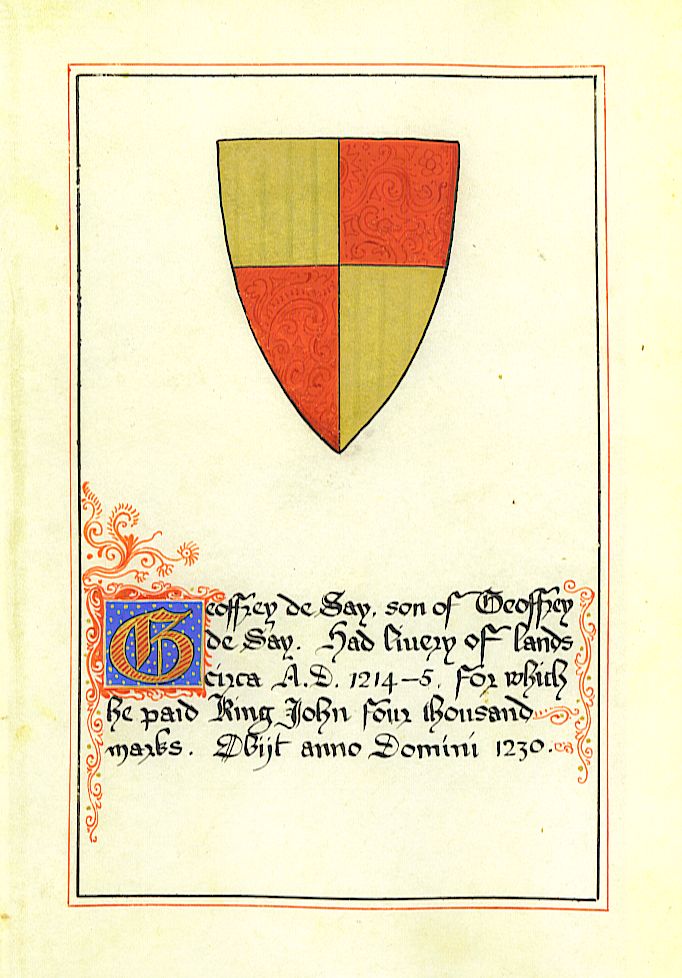 Geoffrey de Say, son of Geoffrey
de Say. Had livery of lands
circa A.D. 1214–5, for which
he paid King John four thousand
marks. Obijt anno Domini 1230.